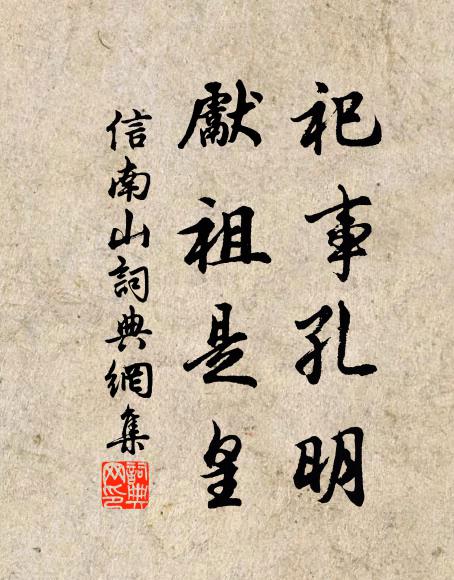 祀事孔明
獻祖是皇
信南山詞典網集
詞典网印